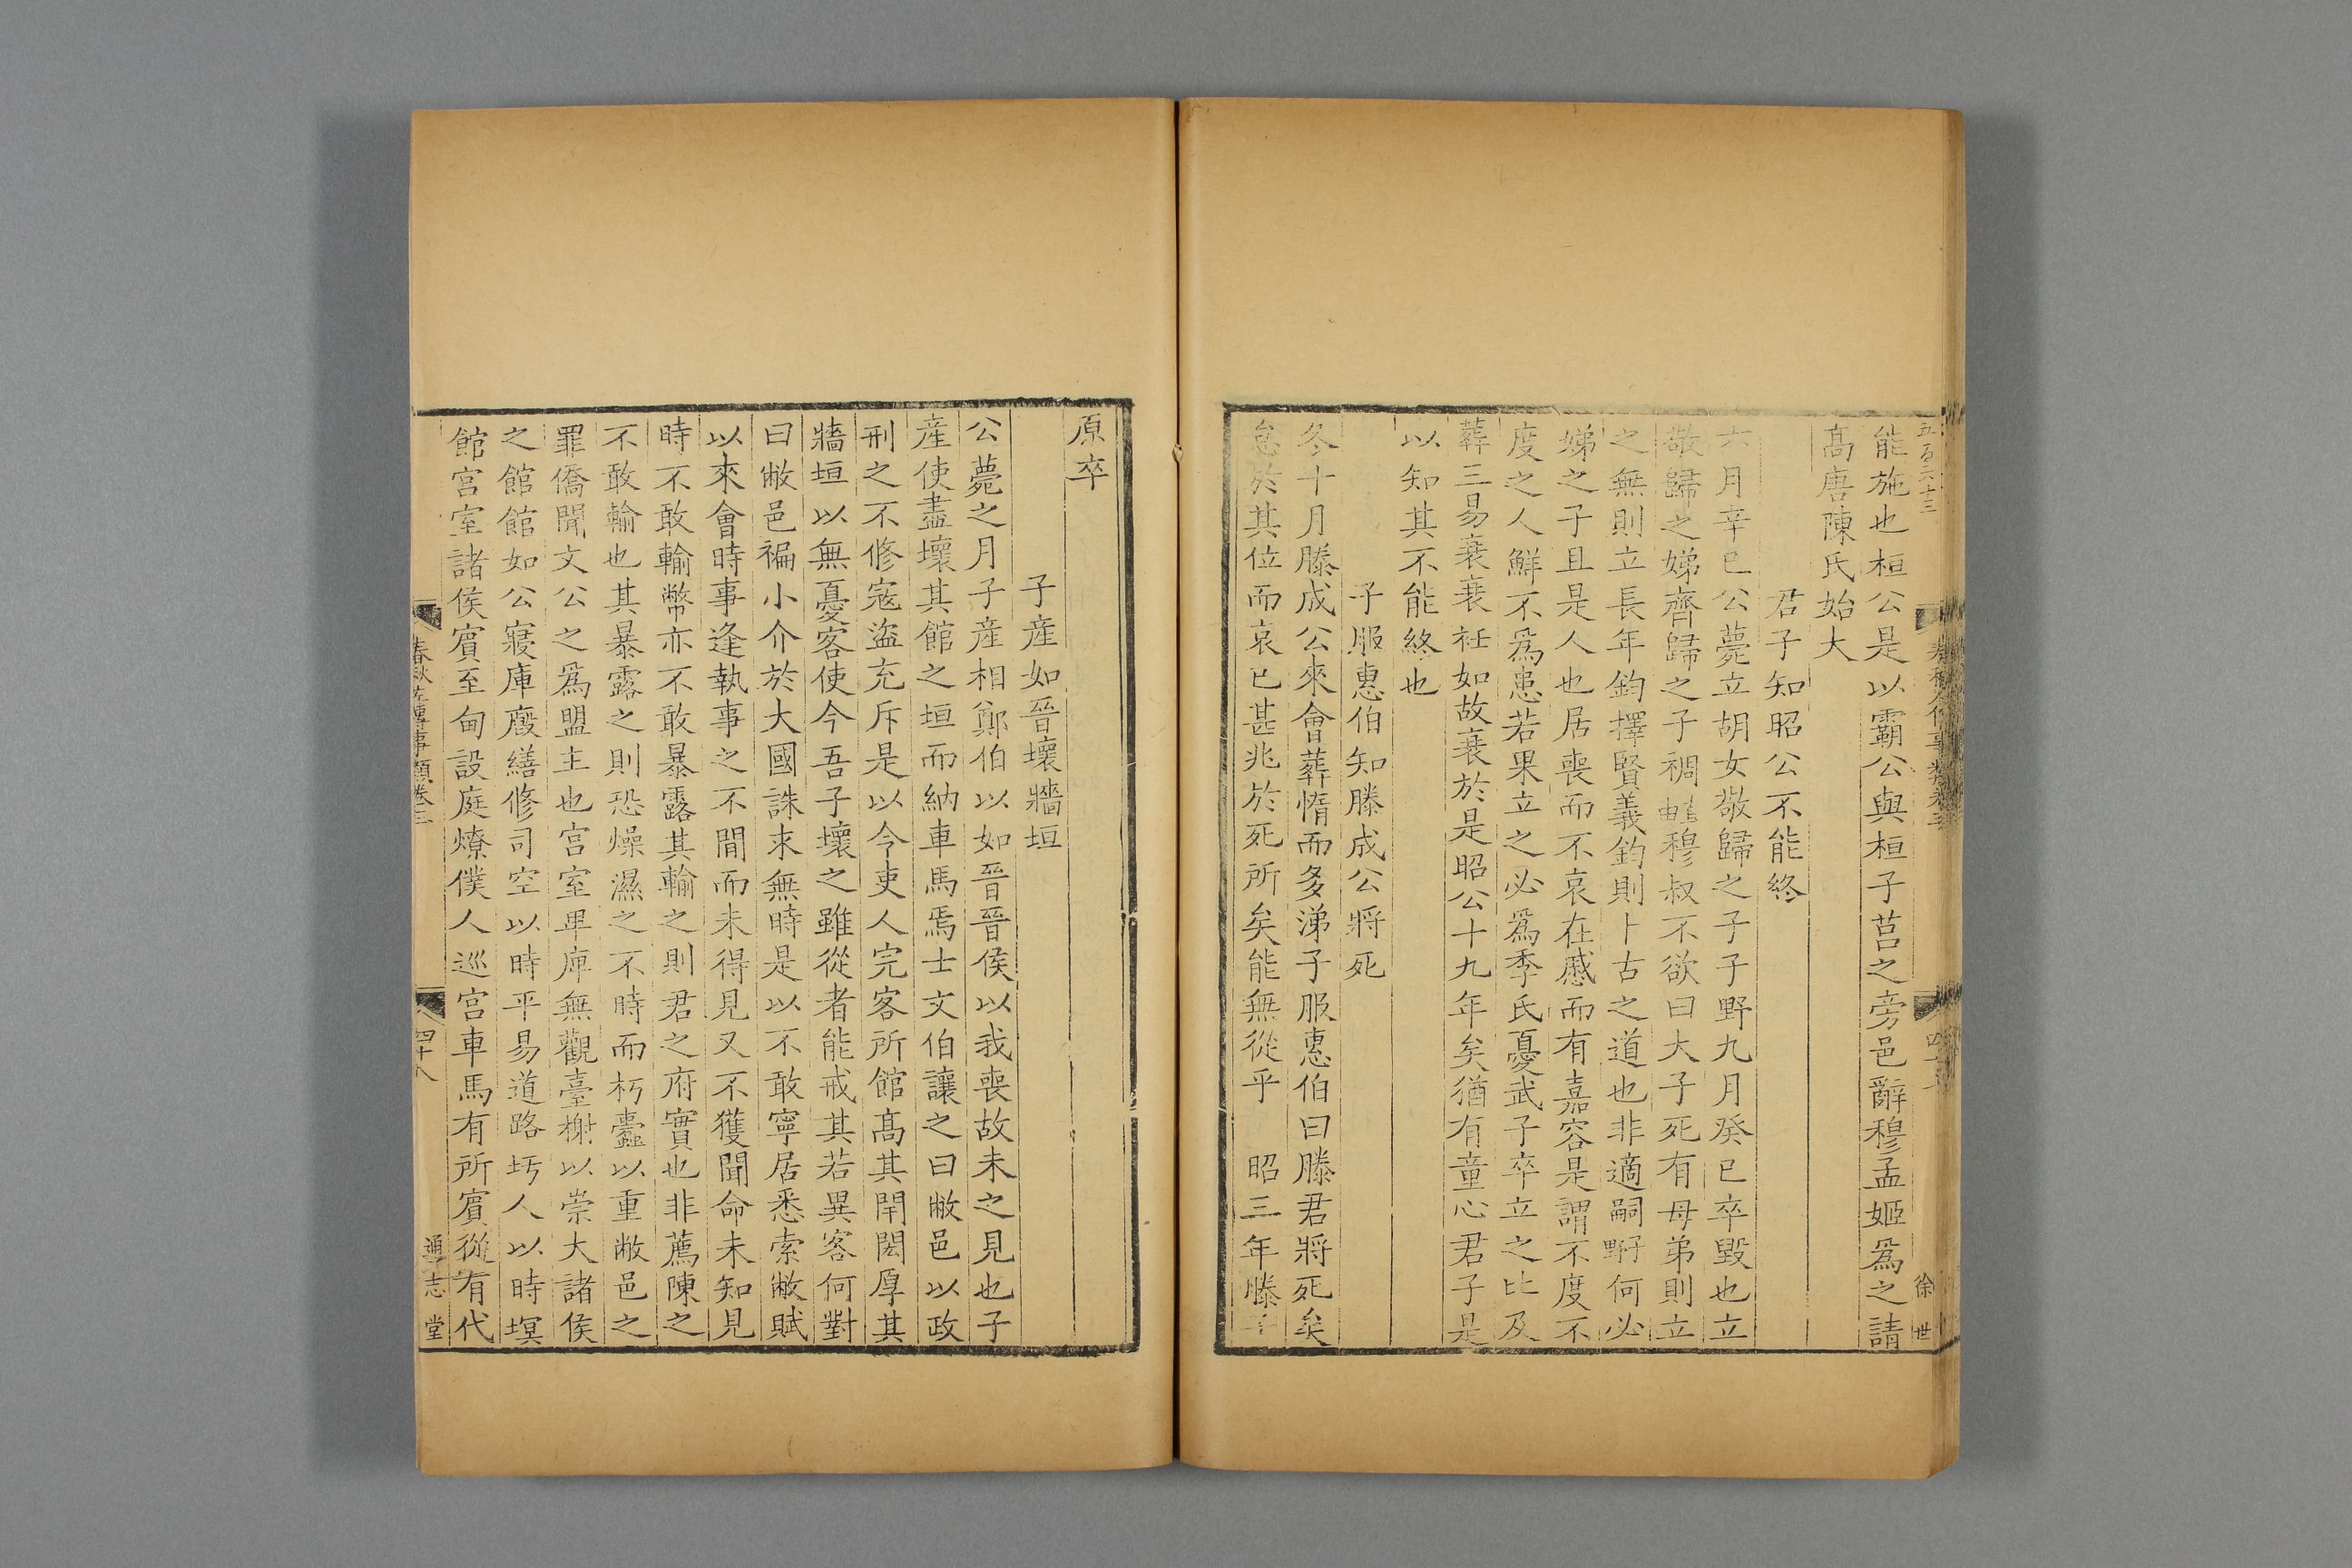 能施也桓公是以霸公與桓子莒之旁邑辭穆孟姬爲之請
高唐陳氏始大
君子知昭公不能終
六月辛巳公薨立胡女敬歸之子子野九月癸巳卒毀也立
敬歸之娣齊歸之子裯穆叔不欲曰大子死有母弟則立
之無則立長年鈞擇賢義鈞則卜古之道也非適嗣何必
娣之子且是人也居喪而不哀在慼而有嘉容是謂不度不
度之人鮮不爲患若果立之必爲季氏憂武子卒立之比及
葬三易衰衰衽如故衰於是昭公十九年矣猶有童心君子是
以知其不能終也
子服惠伯知滕成公將死
冬十月滕成公來會葬惰而多涕子服惠伯曰滕君將死矣
怠於其位而哀已甚兆於死所矣能無從乎 昭三年滕子
原卒
子産如晉壞牆垣
公薨之月子産相鄭伯以如晉晉侯以我喪故未之見也子
産使盡壞其館之垣而納車馬焉士文伯讓之曰敝邑以政
刑之不修寇盜充斥是以令吏人完客所館高其閈閎厚其
牆垣以無憂客使今吾子壞之雖從者能戒其若異客何對
曰敝邑褊小介於大國誅求無時是以不敢寧居悉索敝賦
以來會時事逢執事之不閒而未得見又不獲聞命未知見
時不敢輸幣亦不敢暴露其輸之則君之府實也非薦陳之
不敢輸也其暴露之則恐燥濕之不時而朽蠹以重敝邑之
罪僑聞文公之爲盟主也宮室卑庳無觀臺榭以崇大諸侯
之館館如公寢庫廄繕修司空以時平易道路圬人以時塓
館宮室諸侯賓至甸設庭燎僕人巡宮車馬有所賓從有代
春秋左傳事類卷三
四十八
通志堂